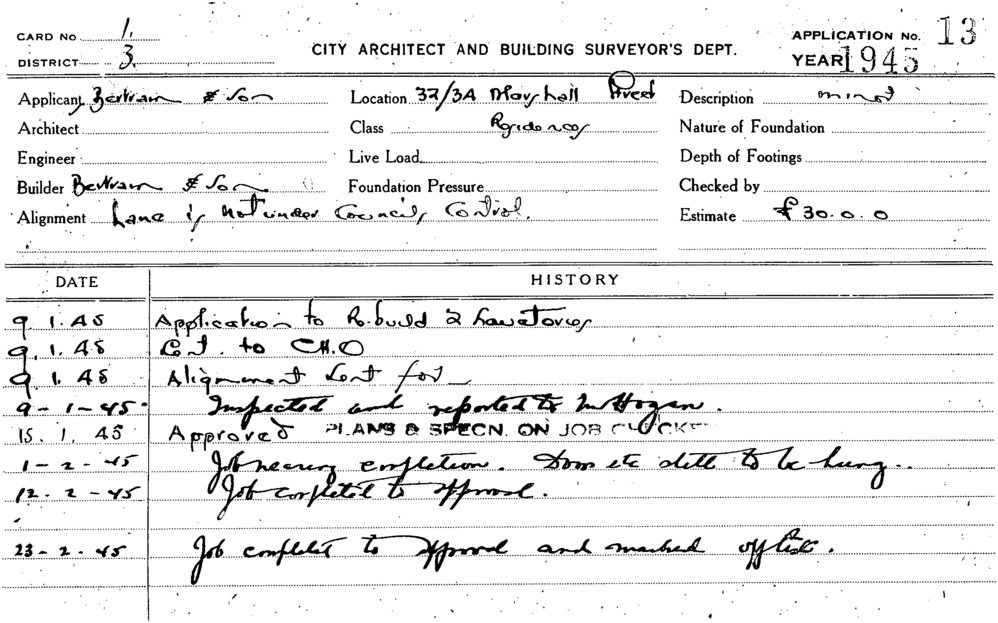 CARD No 1.
DISTRICT 3.
CITY ARCHITECT AND BUILDING SURVEYOR'S DEPT.
APPLICATION No. 13
YEAR 1945
Applicant Bertram & Son
Location 32/34 Marshall Street
Description minor
Architect
Class Residences
Nature of Foundation
Engineer
Live Load
Depth of Footings
Builder Bertram & Son
Foundation Pressure
Checked by
Alignment Lane is not under Council's Control.
Estimate £30.0.0
DATE HISTORY
9.1.45 Application to Rebuild 2 Lavatories
9.1.45 to C.H.O
9.1.45 Alignment Sent for
9-1-45 Inspected and reported to Mr Hogan.
15.1.45 Approved PLANS & SPECN. ON JOB CHECKED
1-2-45 Job nearing completion. Doors etc still to be hung.
12-2-45 Job completed to approval.
23-2-45 Job completed to approval and marked off